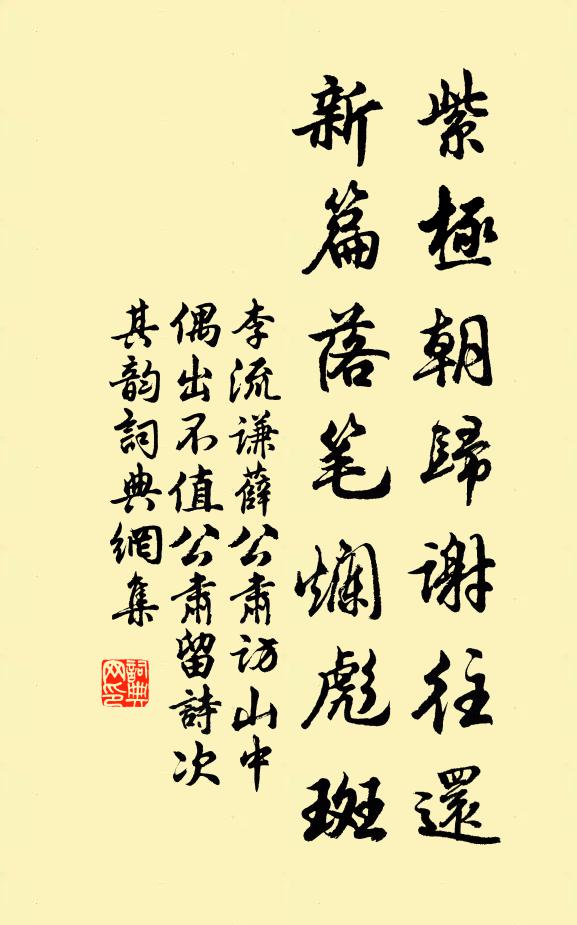 紫極朝歸謝往還
新篇落笔爛彪斑
李流谦薛公肅访山中
偶出不值公肅留詩次
其韵詞典網集
詞典网印